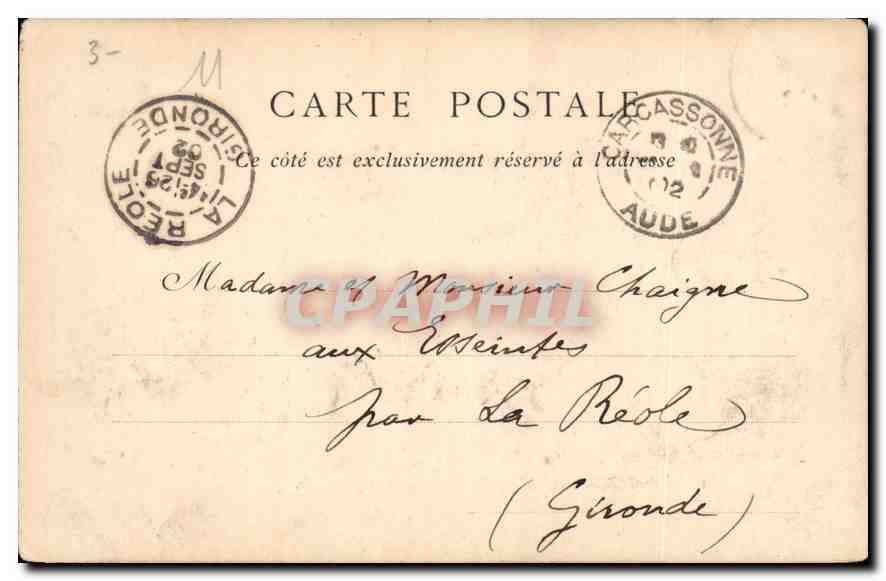 3-
11
CARTE POSTALE
Ce côté est exclusivement réservé à l'adresse
LA RÉOLE
GIRONDE
26
SEPT
02
CARCASSONNE
02
AUDE
Madame et Monsieur Chaigne
aux Esseintes
par La Réole
(Gironde)
CPAPHIL